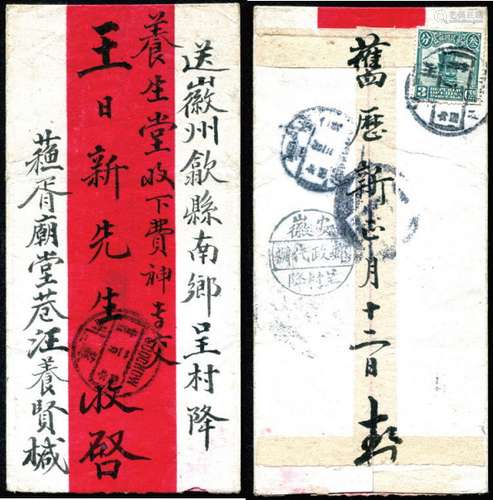 送徽州歙縣南鄉呈村降
養生堂收下費神專交
王日新先生收啓
蘇胥廟堂巷汪養賢椷
SOOCHOW
舊歷新正月十二日
安徽
郵政代辦
呈村降
叁分
3